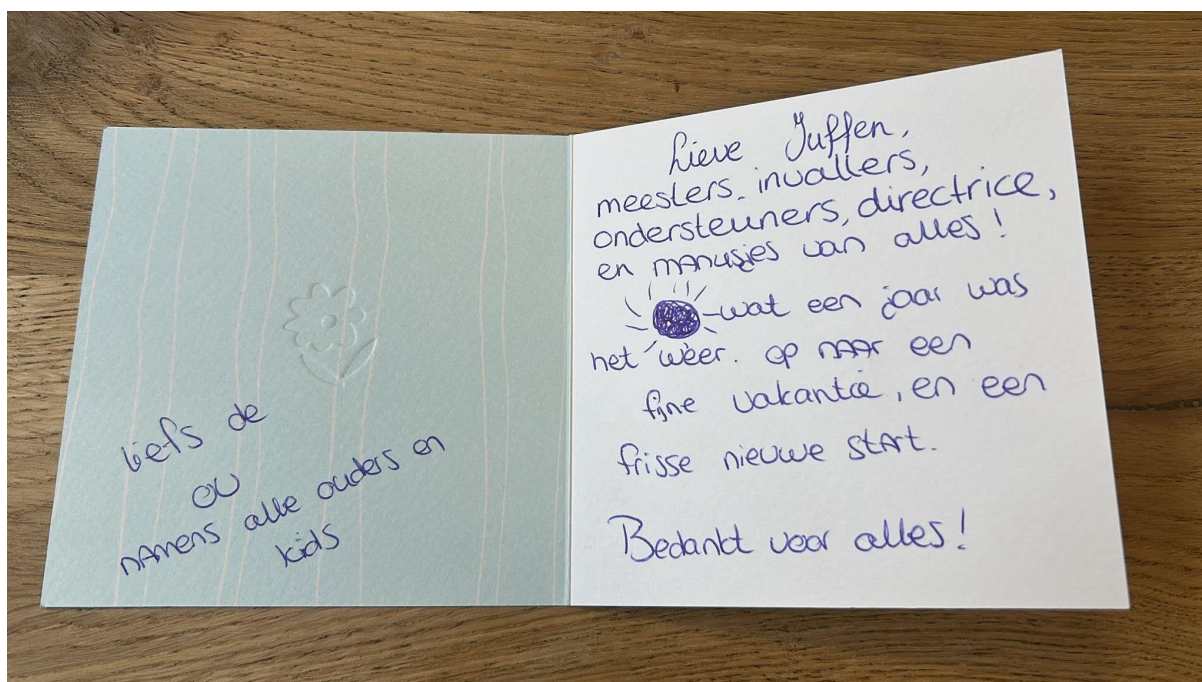 Liefs de
OV
namens alle ouders en
kids
Lieve Juffen,
meesters, invallers,
ondersteuners, directrice,
en manusjes van alles!
wat een jaar was
het weer. op naar een
fijne vakantie, en een
frisse nieuwe start.
Bedankt voor alles!